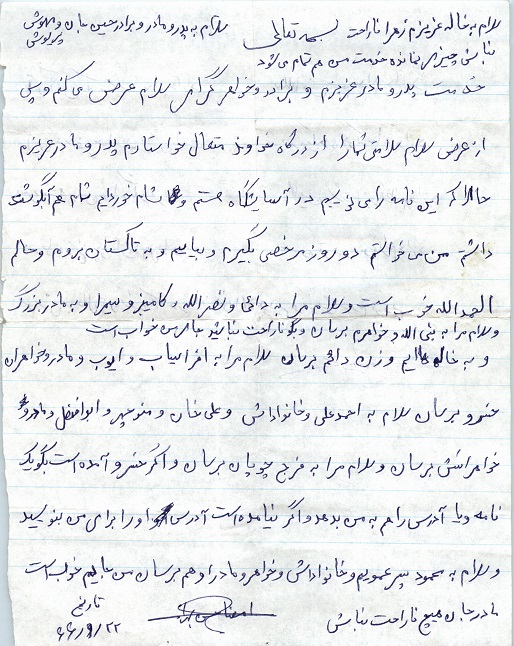 سلام به خاله عزیزم زهرا ناراحت
نباشی چیزی نمانده خدمت من هم تمام می شود
بسمه تعالی
سلام به پدر و مادر و برادر حسین جان و مهنوش
پرنوش
خدمت پدر و مادر عزیزم و برادر و خواهر گرامی سلام عرض می کنم و پس
از عرض سلام سلامتی شما را از درگاه خداوند متعال خواستارم پدر و مادر عزیزم
حالا که این نامه را می نویسم در آسایشگاه هستم و شام خورده ایم شام هم آبگوشت
داشتم من می خواستم دو روز مرخصی بگیرم و بیایم و به تاکستان بروم و حالم
الحمدالله خوب است و سلام مرا به دائی و نصرالله و کامبیز و سمیرا و به مادر بزرگ
و سلام مرا به نبی الله و خواهرم برسان و بگو ناراحت نباشید جای من خوب است
و به خاله هایم و زن دائیم برسان سلام مرا به افراسیاب و ایوب و مادر و خواهران
خسرو برسان سلام به احمد علی و خانواداش و علی خان و منوچهر و ابوالفضل و مادر و
خواهرانش برسان و سلام مرا به فرج چوپان برسان و اگر خسرو آمده است بگو یک
نامه و یا آدرس را هم به من بدهد و اگر نیامده است آدرس او را برای من بنویسید
و سلام به محمود پسر عمویم و خانواداش و خواهر و مادر او هم برسان من جایم خوب است
مادر جان هیچ ناراحت نباش
تاریخ
۶۶/۹/۲۲